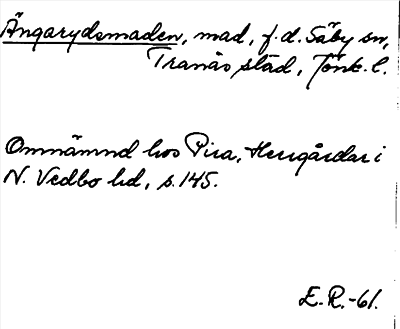 Ängarydsmaden, mad, f.d. Säby sn,
Tranås stad, Jönk. l.
Omnämnd hos Pira, Herrgårdar i
N. Vedbo hd, s. 145.
E. R. -61.